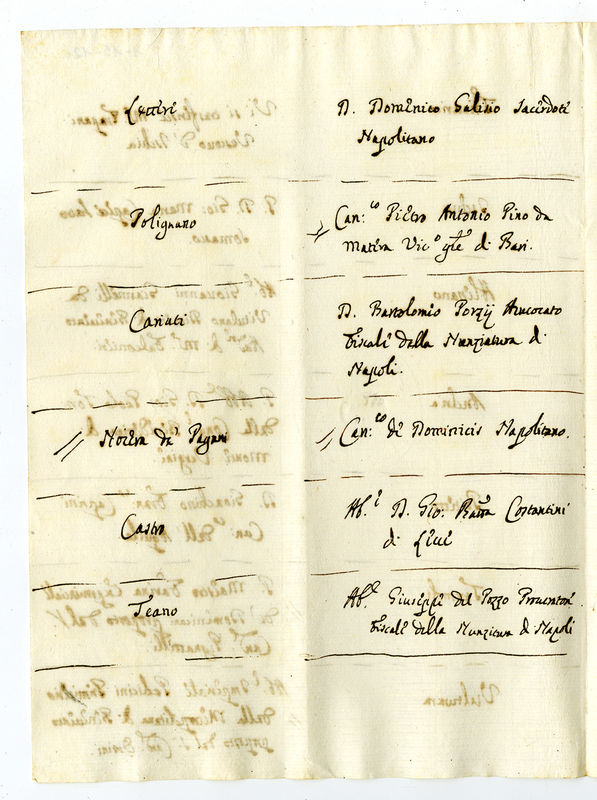 Lettere
D. Domenico Galisio Sacerdote
Napolitano
Polignano
Can:co Pietro Antonio Pino da
Matera Vic.o gnle di Bari.
Cariati
D. Bartolomeo Porzij Avvocato
fiscale della Nunziatura di
Napoli.
Nocera de' Pagani
Can:co de Dominicis Napolitano.
Castro
Ab.e D. Gio: Batta Costantini
di Lecce
Teano
Ab.e Giuseppe del Pozzo Promotore
fiscale della Nunziatura di Napoli